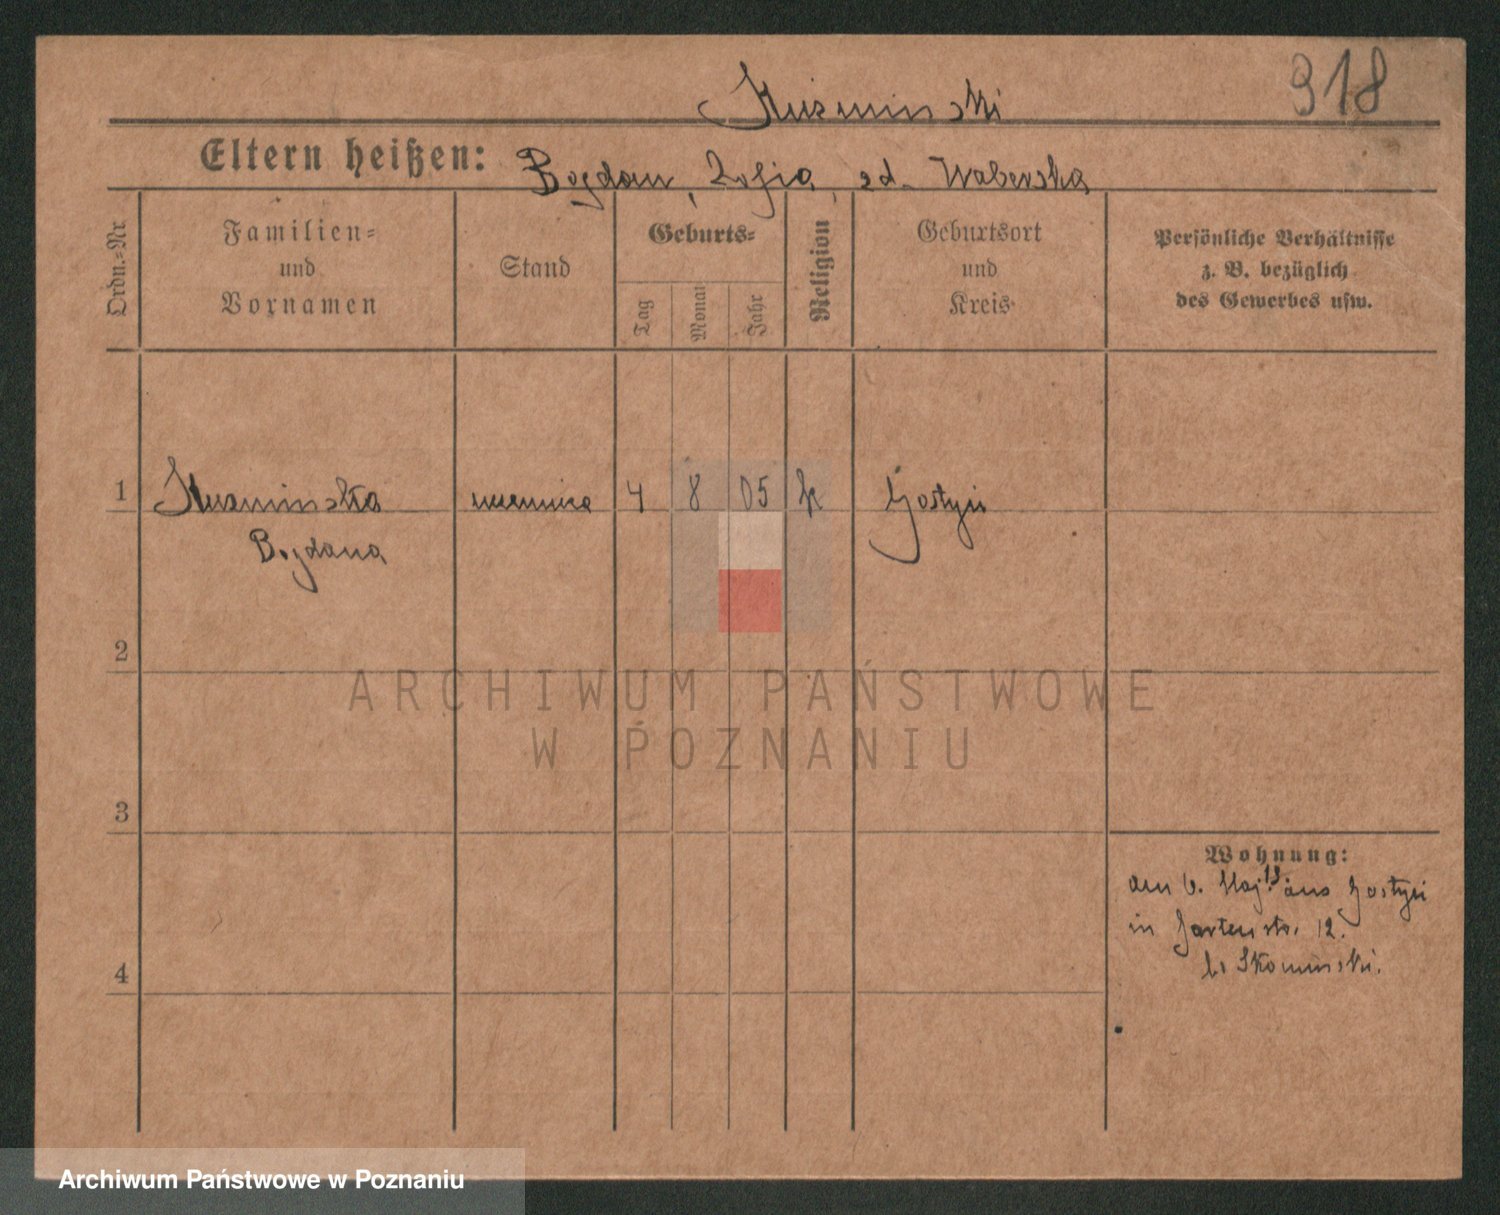 318
Kuzminski
Eltern heißen: Bogdan, Zofia, zd. Waberska
Ordn.-Nr
Familien-
und
Vornamen
Stand
Geburts-
Tag
Monat
Jahr
Religion
Geburtsort
und
Kreis
Persönliche Verhältnisse
z. B. bezüglich
des Gewerbes usw.
1 Kuzminska uczennica 4 8 05 k Gostyń
Bogdana
2
ARCHIWUM PAŃSTWOWE
W POZNANIU
3
Wohnung:
den 6. Maj 19 aus Gostyń
in Gartenstr. 12.
4
b. Skominski.
Archiwum Państwowe w Poznaniu